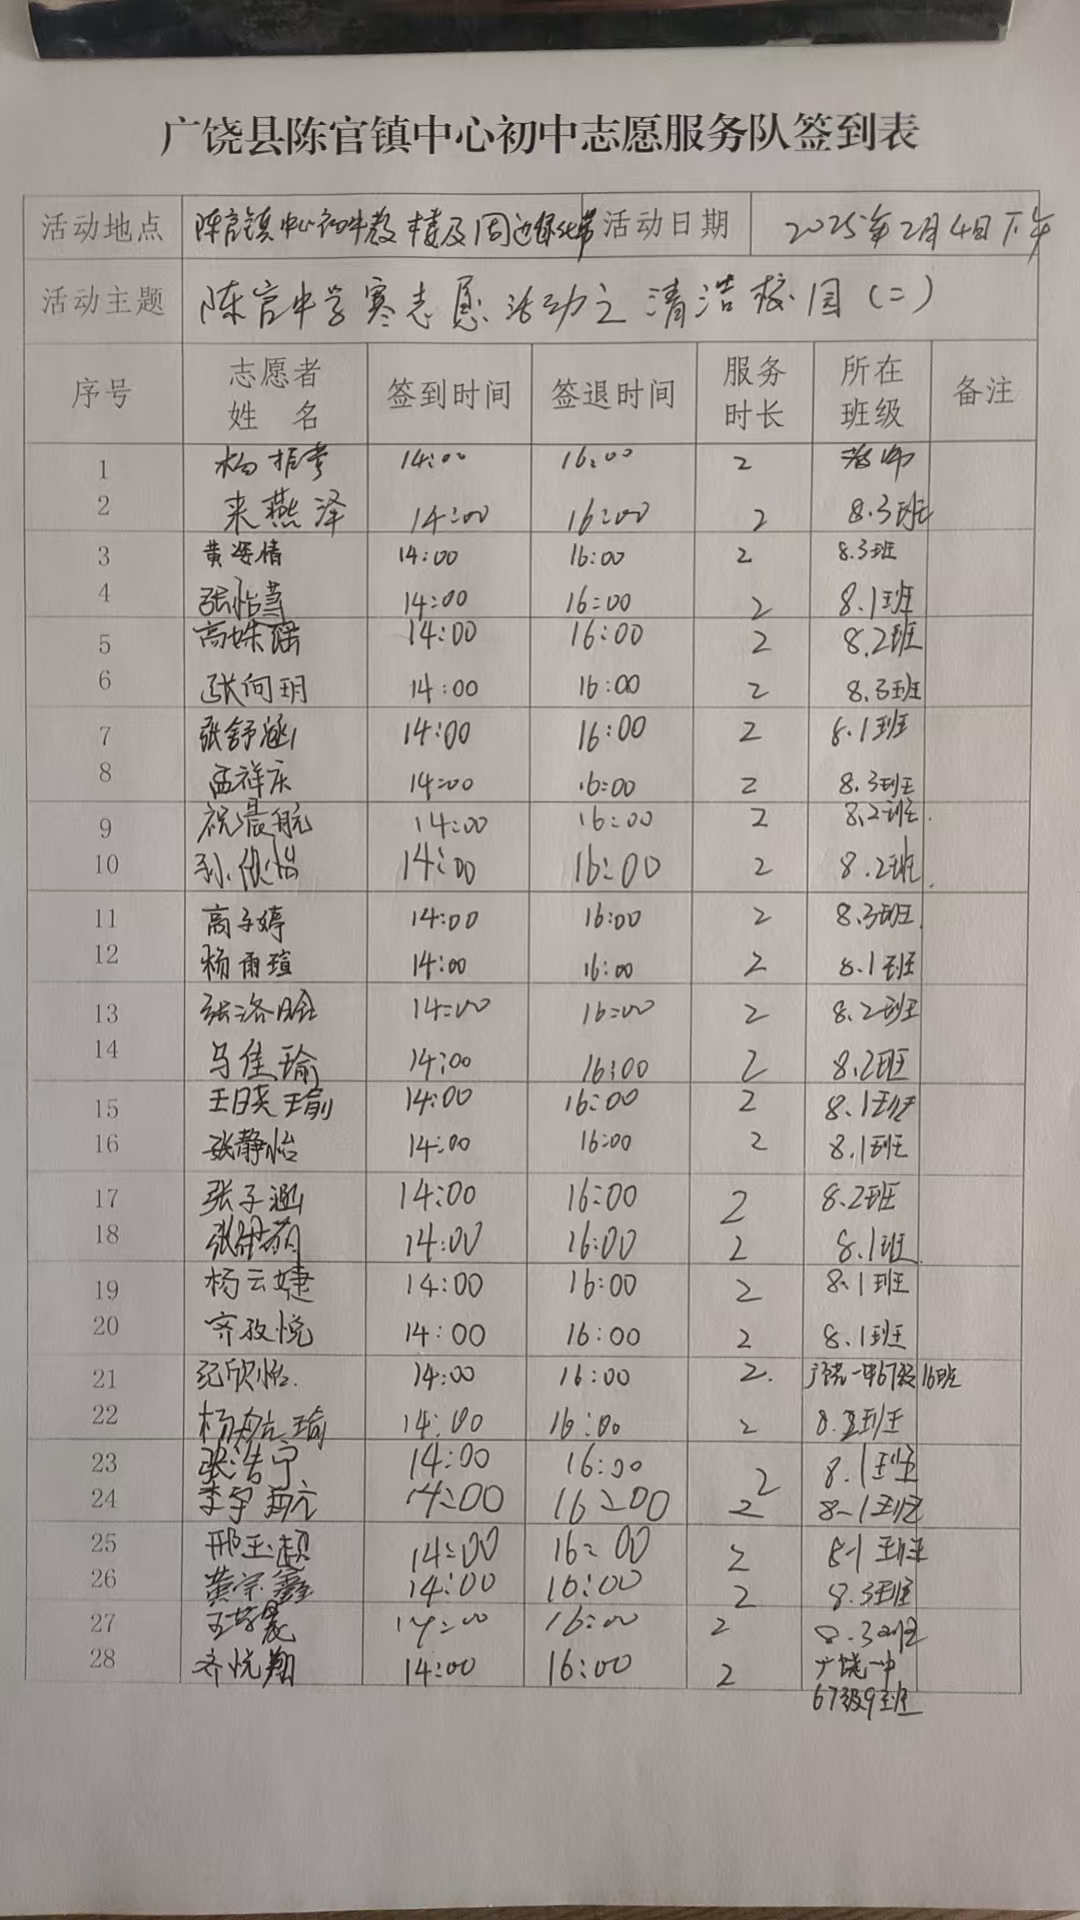 广饶县陈官镇中心初中志愿服务队签到表
活动地点 陈官镇中心初中教学楼及周边绿化带 活动日期 2025年2月4日下午
活动主题 陈官中学寒志愿活动之清洁校园(二)
序号 志愿者姓名 签到时间 签退时间 服务时长 所在班级 备注
1 杨 14:00 16:00 2 老师
2 来燕泽 14:00 16:00 2 8.3班
3 黄姿情 14:00 16:00 2 8.3班
4 张怡 14:00 16:00 2 8.1班
5 高姝瑶 14:00 16:00 2 8.2班
6 张向玥 14:00 16:00 2 8.3班
7 张舒涵 14:00 16:00 2 8.1班
8 孟祥庆 14:00 16:00 2 8.3班
9 祝晨航 14:00 16:00 2 8.2班.
10 孙欣怡 14:00 16:00 2 8.2班.
11 高子婷 14:00 16:00 2 8.3班.
12 杨雨瑄 14:00 16:00 2 8.1班
13 张洛晗 14:00 16:00 2 8.2班
14 马佳瑜 14:00 16:00 2 8.2班
15 王日英瑜 14:00 16:00 2 8.1班
16 张静怡 14:00 16:00 2 8.1班
17 张子涵 14:00 16:00 2 8.2班
18 张 14:00 16:00 2 8.1班
19 杨云婕 14:00 16:00 2 8.1班
20 齐孜悦 14:00 16:00 2 8.1班
21 纪欣怡. 14:00 16:00 2. 广饶一中67级16班
22 杨 瑜 14:00 16:00 2 8.2班
23 张浩宁 14:00 16:00 2 8.1班
24 李宇航 14:00 16:00 2 8-1班
25 邢玉超 14:00 16:00 2 8-1班
26 黄宗鑫 14:00 16:00 2 8.3班
27 晨 14:00 16:00 2 8.3班
28 齐悦翔 14:00 16:00 2 广饶一中
67级9班